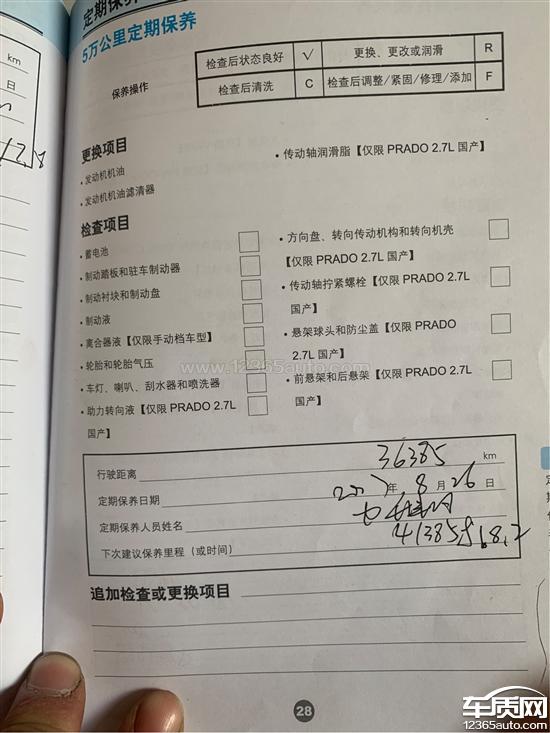 定期保养
5万公里定期保养
保养操作
检查后状态良好 √ 更换、更改或润滑 R
检查后清洗 C 检查后调整/紧固/修理/添加 F
更换项目
·发动机机油
·发动机机油滤清器
·传动轴润滑脂【仅限 PRADO 2.7L 国产】
检查项目
·蓄电池
·制动踏板和驻车制动器
·制动衬块和制动盘
·制动液
·离合器液【仅限手动档车型】
·轮胎和轮胎气压
·车灯、喇叭、刮水器和喷洗器
·助力转向液【仅限 PRADO 2.7L
国产】
·方向盘、转向传动机构和转向机壳
【仅限 PRADO 2.7L 国产】
·传动轴拧紧螺栓【仅限 PRADO 2.7L
国产】
·悬架球头和防尘盖【仅限 PRADO
2.7L 国产】
·前悬架和后悬架【仅限 PRADO 2.7L
国产】
www.12365auto.com
行驶距离 36385 km
定期保养日期 年 8 月 26 日
定期保养人员姓名
下次建议保养里程（或时间） 41385
追加检查或更换项目
28
km
日
车质网
12365auto.com